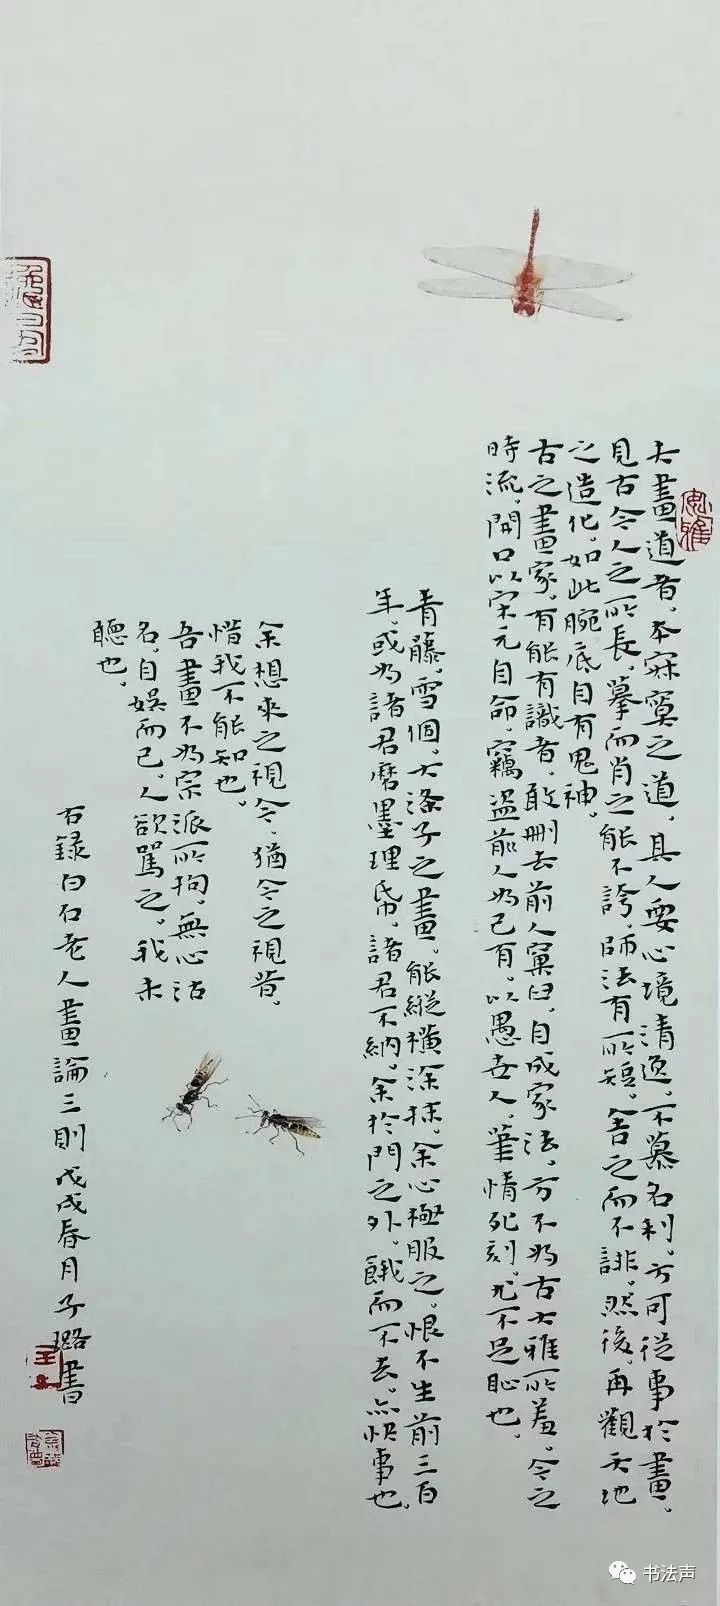 夫畫道者，本寂寞之道，其人要心境清逸，不慕名利，方可從事於畫。
見古今人之所長，摹而肖之能不誇，師法有所短，舍之而不誹，然後，再觀天地
之造化，如此腕底自有鬼神。
古之畫家，有能有識者，敢刪去前人窠臼，自成家法，方不為古大雅所羞。今之
時流，開口以宋元自命，竊盜前人為己有，以愚世人，筆情死刻，尤不足恥也。
青藤，雪個，大滌子之畫，能縱橫涂抹，余心極服之，恨不生前三百
年，或為諸君磨墨理帋，諸君不納，余於門之外，餓而不去，亦快事也。
余想來之視今，猶今之視昔，
惜我不能知也。
吾畫不為宗派所拘，無心沽
名，自娛而已，人欲罵之，我未
聽也。
右錄白石老人畫論三則戊戌春月子璐書
书法声